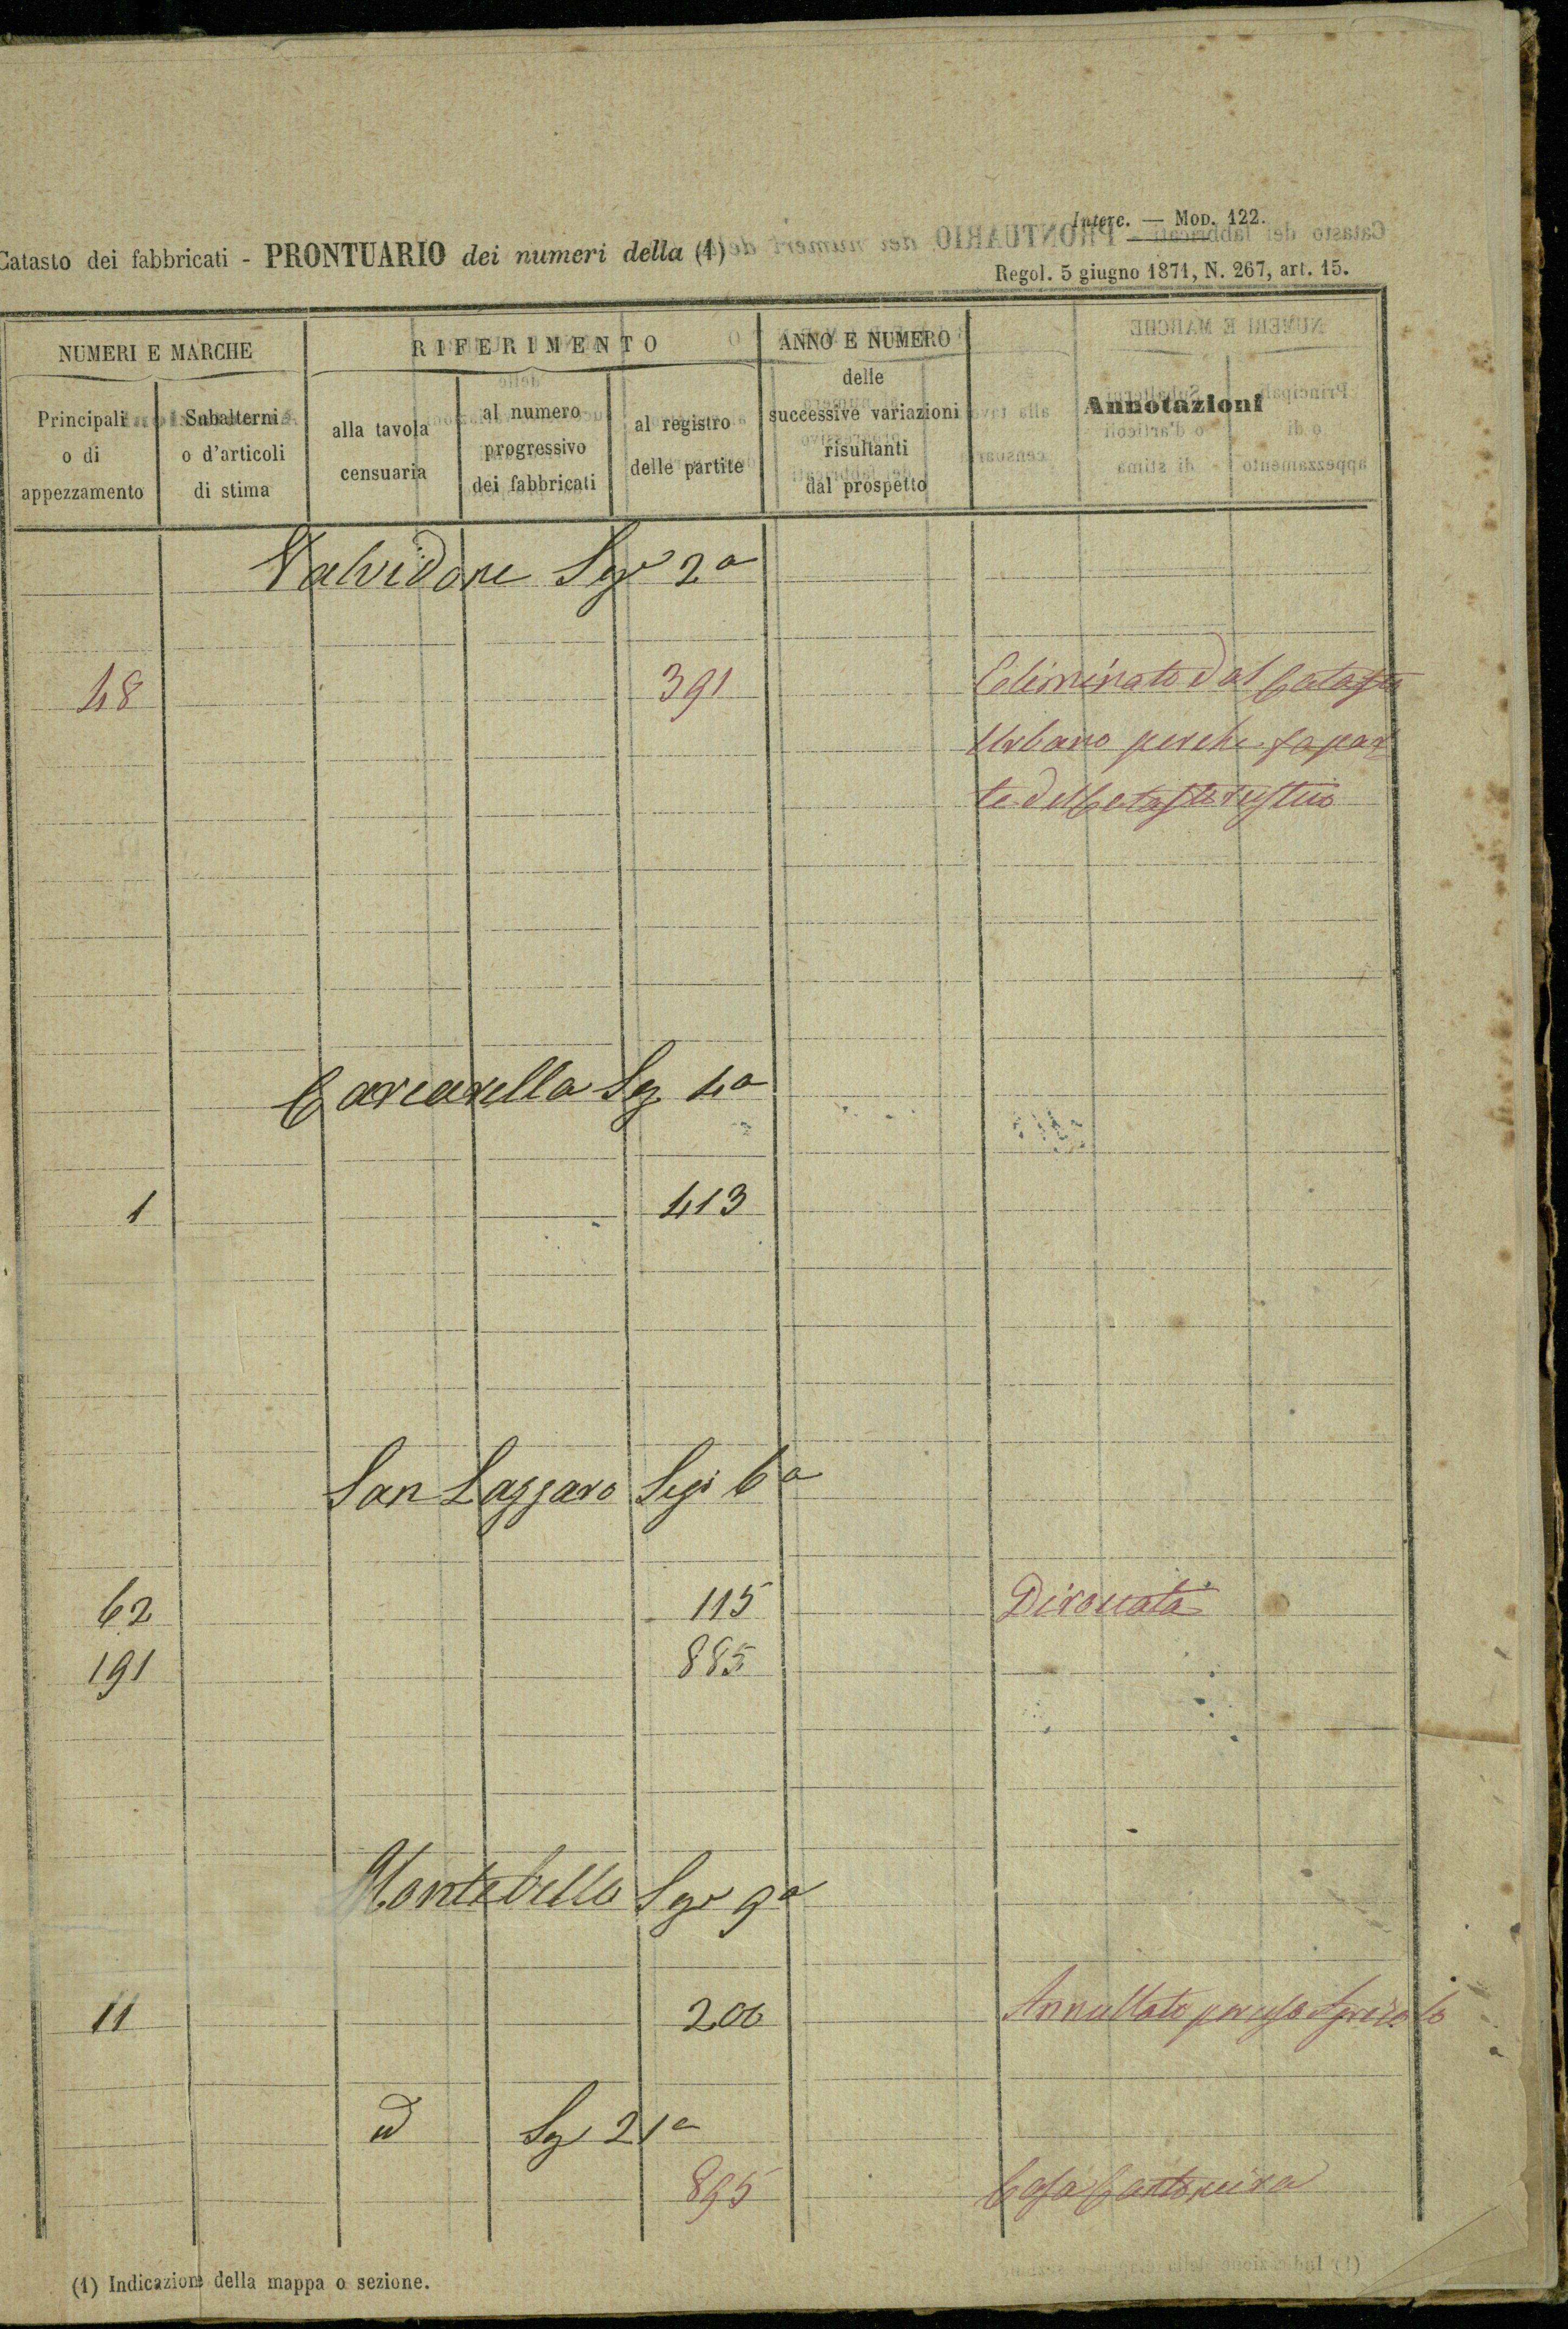 Interc. — Mod. 122.
Catasto dei fabbricati - PRONTUARIO dei numeri della (1)
Regol. 5 giugno 1871, N. 267, art. 15.
NUMERI E MARCHE
RIFERIMENTO
ANNO E NUMERO
delle
successive variazioni
risultanti
dal prospetto
Annotazioni
Principali
o di
appezzamento
Subalterni
o d'articoli
di stima
alla tavola
censuaria
al numero
progressivo
dei fabbricati
al registro
delle partite
Valvidone Sez 2a
48 391 Eliminato dal Catasto
Urbano perche fa par
te del Catasto rustico
Carcarella Sez 4a
1 413
San Lazzaro Sez 6a
62 115 Diroccata
191 885
Montebello Sez 9a
11 200 Annullato per uso Agricolo
id Sez 21a
895 Casa Cantoniera
(1) Indicazione della mappa o sezione.